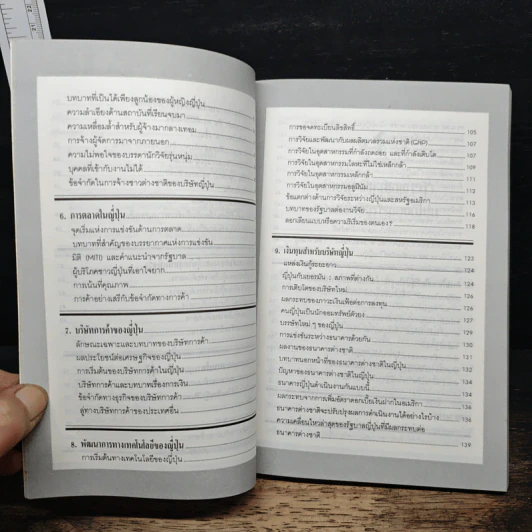 บทบาทที่เป็นได้เพียงลูกน้องของผู้หญิงญี่ปุ่น
ความลำเอียงด้านสถาบันที่เรียนจบมา
ความเหลื่อมล้ำสำหรับผู้จ้างมากลางเทอม
การจ้างผู้จัดการมาจากภายนอก
ความไม่พอใจของบรรดานักวิจัยรุ่นหนุ่ม
บุคคลที่เข้ากับงานไม่ได้
ข้อจำกัดในการจ้างชาวต่างชาติของบริษัทญี่ปุ่น
6. การตลาดในญี่ปุ่น
จุดเริ่มแห่งการแข่งขันด้านการตลาด
บทบาทที่สำคัญของบรรยากาศแห่งการแข่งขัน
มิติ (MITI) และคำแนะนำจากรัฐบาล
ผู้บริโภคชาวญี่ปุ่นที่เอาใจยาก
การเน้นที่คุณภาพ
การค้าอย่างเสรีกับข้อจำกัดทางการค้า
7. บริษัทการค้าของญี่ปุ่น
ลักษณะเฉพาะและบทบาทของบริษัทการค้า
ผลประโยชน์ต่อเศรษฐกิจของญี่ปุ่น
การเริ่มต้นของบริษัทการค้าในญี่ปุ่น
บริษัทการค้าและบทบาทเรื่องการเงิน
ข้อจำกัดทางธุรกิจของบริษัทการค้า
ลู่ทางบริษัทการค้าของประเทศอื่น
8. พัฒนาการทางเทคโนโลยีของญี่ปุ่น
การเริ่มต้นทางเทคโนโลยีของญี่ปุ่น
การขอจดทะเบียนลิขสิทธิ์ 105
การวิจัยและพัฒนากับผลผลิตมวลรวมแห่งชาติ (GNP) 107
การวิจัยในอุตสาหกรรมที่กำลังถดถอย และที่กำลังเติบโต 108
การวิจัยในอุตสาหกรรมโลหะที่ไม่ใช่เหล็กกล้า 109
การวิจัยในอุตสาหกรรมเหล็กกล้า 111
การวิจัยในอุตสาหกรรมอลูมินั่ม 113
ข้อแตกต่างด้านการวิจัยระหว่างญี่ปุ่นและสหรัฐอเมริกา 116
บทบาทของรัฐบาลต่องานวิจัย
ลอกเลียนแบบหรือความริเริ่มของตนเอง ?
9. เงินทุนสำหรับบริษัทญี่ปุ่น 123
แหล่งเงินกู้ระยะยาว 124
ญี่ปุ่นกับเยอรมัน : สภาพที่ต่างกัน 124
การเติบโตของบริษัทใหม่ 126
ผลกระทบของภาวะเงินเฟ้อต่อการลงทุน 126
คนญี่ปุ่นเป็นนักออมทรัพย์ตัวยง 127
บรรษัทใหม่ ๆ ของญี่ปุ่น 129
การแข่งขันระหว่างธนาคารด้วยกัน 130
ผลงานของธนาคารต่างชาติ
บทบาทนอกหน้าที่ของธนาคารต่างชาติในญี่ปุ่น
ปัญหาของธนาคารต่างชาติในญี่ปุ่น
ธนาคารญี่ปุ่นดำเนินงานกันแบบนี้
ผลกระทบจากการเพิ่มอัตราดอกเบี้ยเงินฝากในอเมริกา
ธนาคารต่างชาติจะปรับปรุงผลการดำเนินงานได้อย่างไรบ้าง
ความเคลื่อนไหวล่าสุดของรัฐบาลญี่ปุ่นที่มีผลกระทบต่อ
ธนาคารต่างชาติ 139